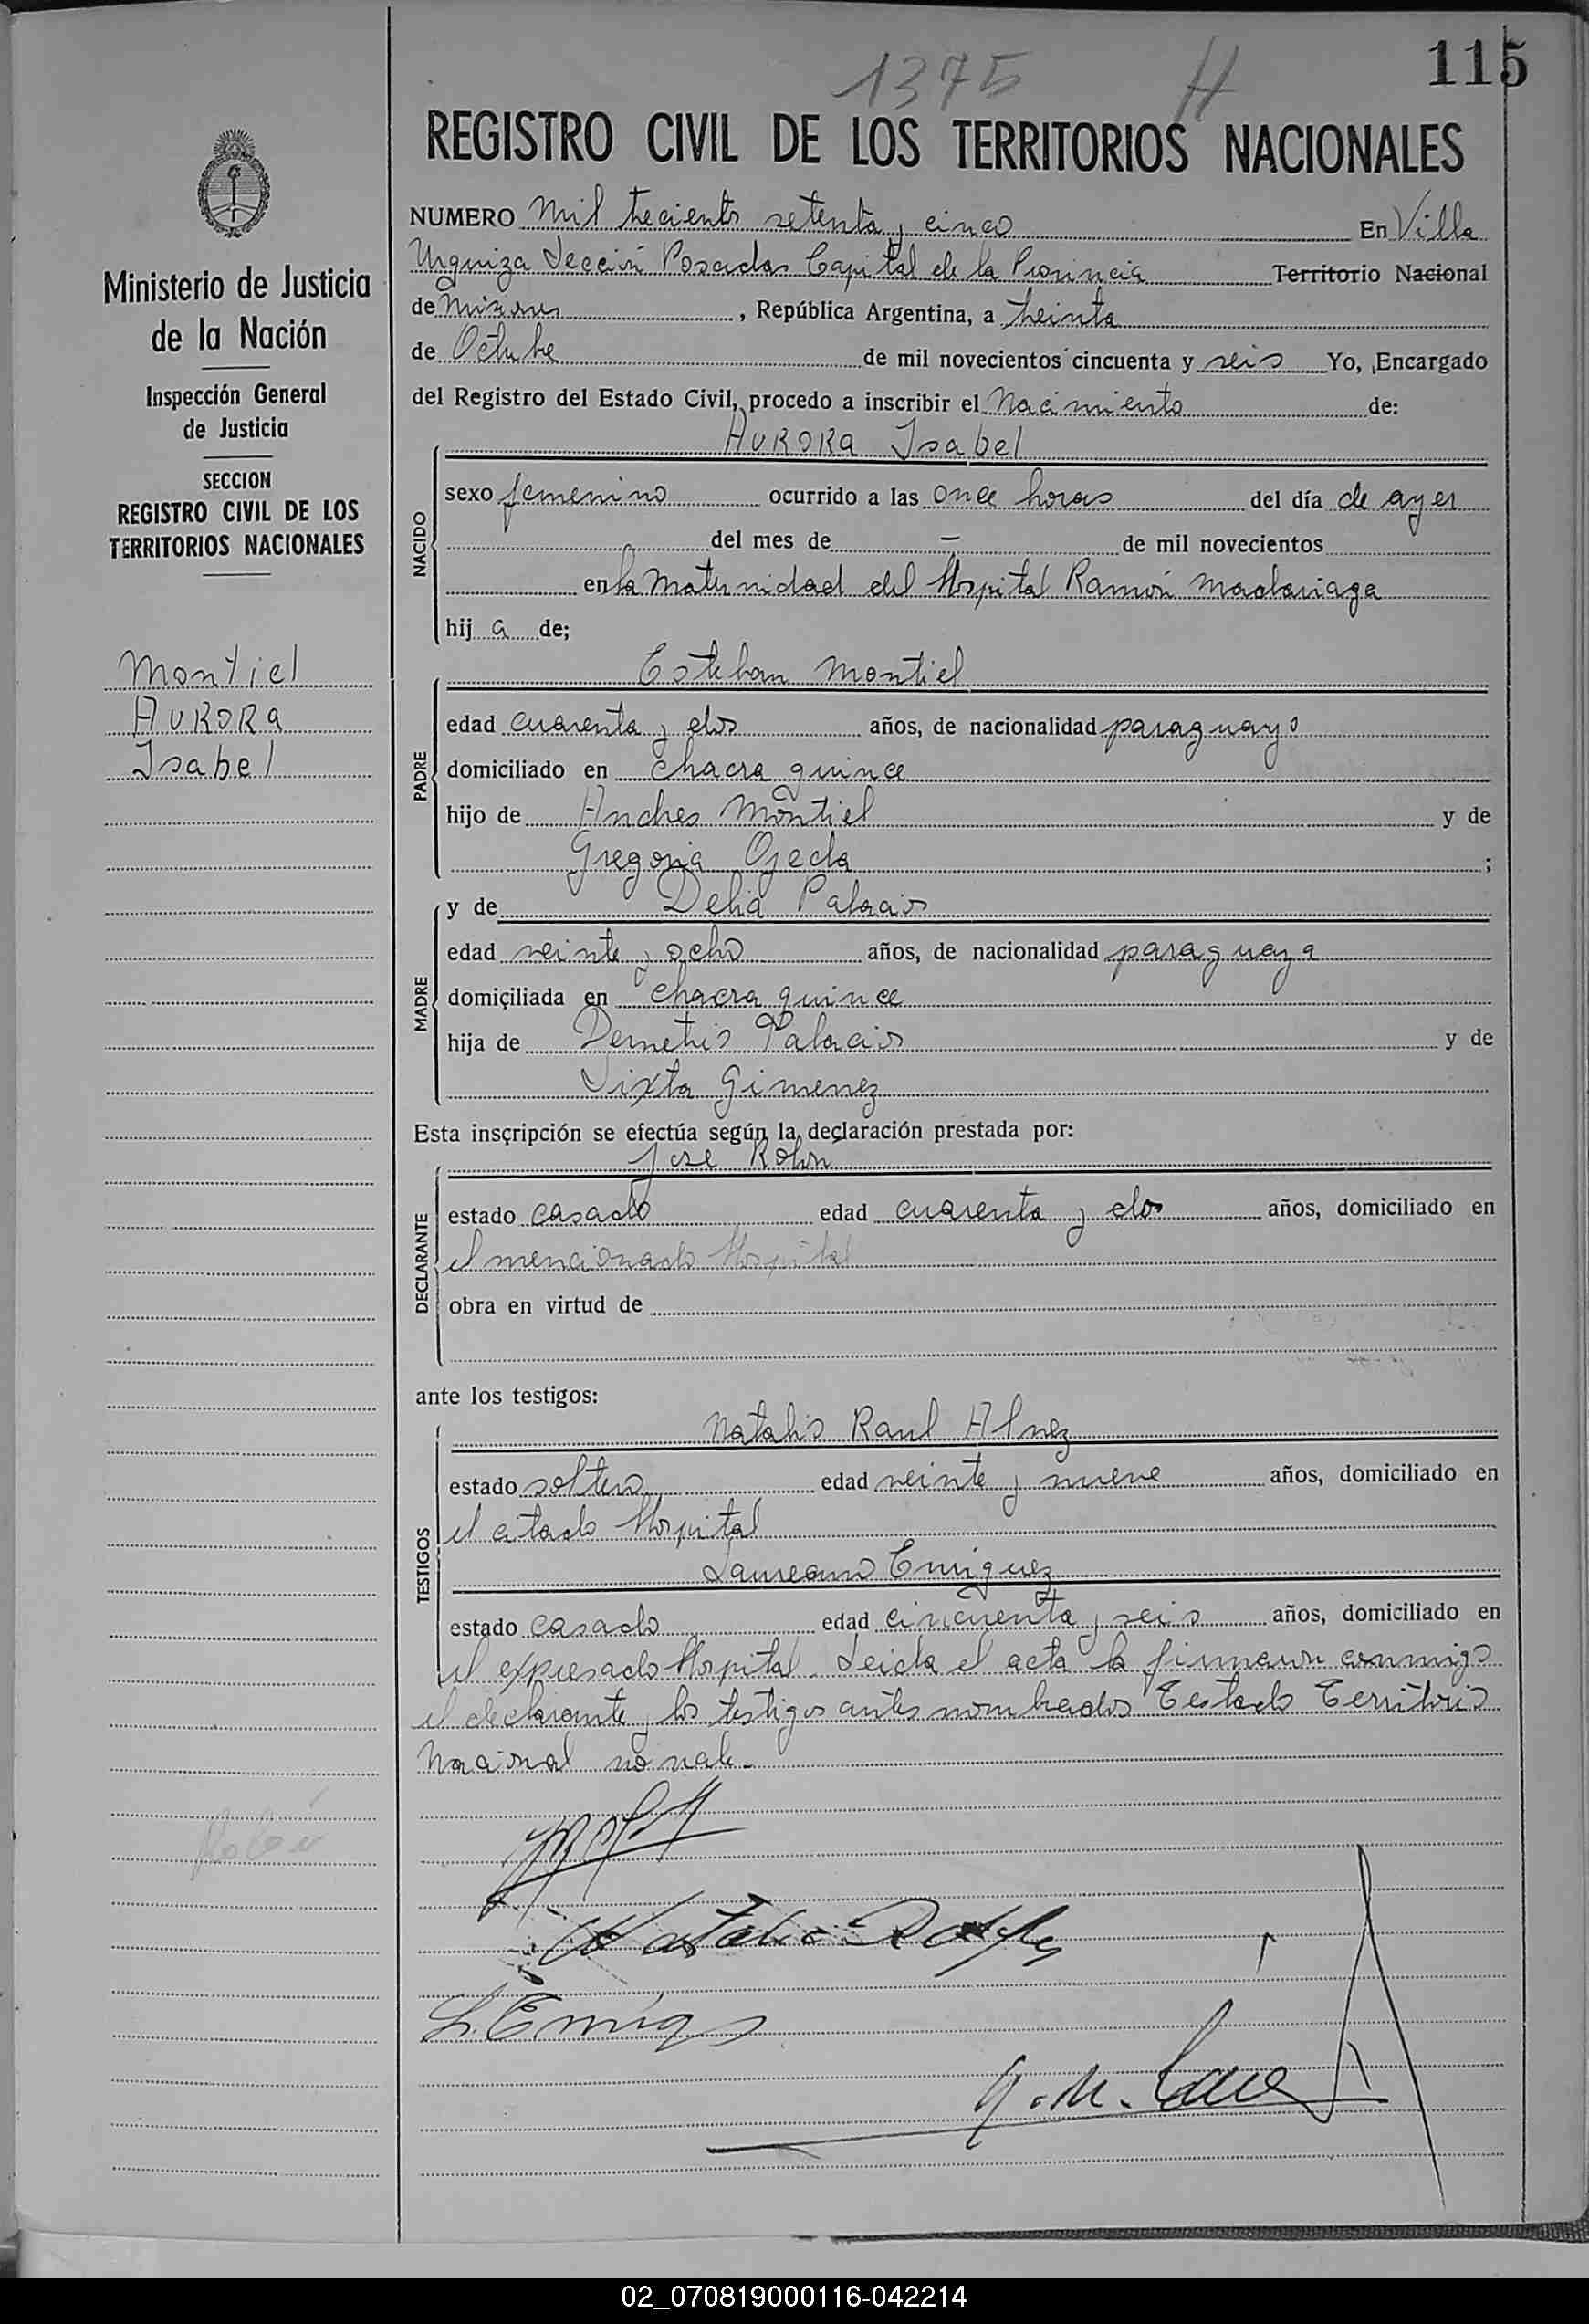 115
1375 H
REGISTRO CIVIL DE LOS TERRITORIOS NACIONALES
Ministerio de Justicia
de la Nación
Inspección General
de Justicia
SECCION
REGISTRO CIVIL DE LOS
TERRITORIOS NACIONALES
Montiel
AURORA
Isabel
NUMERO Mil trecientos setenta y cinco En Villa
Urquiza Sección Posadas Capital de la Provincia Territorio Nacional
de Misiones, República Argentina, a treinta
de Octubre de mil novecientos cincuenta y seis Yo, Encargado
del Registro del Estado Civil, procedo a inscribir el Nacimiento de:
AURORA Isabel
NACIDO
sexo femenino ocurrido a las once horas del día de ayer
del mes de — de mil novecientos
en la Maternidad del Hospital Ramón Madariaga
hij a de;
PADRE
Esteban Montiel
edad cuarenta y dos años, de nacionalidad paraguayo
domiciliado en chacra quince
hijo de Andres Montiel y de
Gregoria Ojeda ;
MADRE
y de Delia Palacios
edad veinte y ocho años, de nacionalidad paraguaya
domiciliada en chacra quince
hija de Demetrio Palacios y de
Sixta Gimenez
Esta inscripción se efectúa según la declaración prestada por:
DECLARANTE
Jose
estado casado edad cuarenta y dos años, domiciliado en
el mencionado Hospital
obra en virtud de
ante los testigos:
TESTIGOS
Natalio Raul
estado soltero edad veinte y nueve años, domiciliado en
el citado Hospital
Laureano Enriquez
estado casado edad cincuenta y seis años, domiciliado en
el expresado Hospital. Leida el acta la firmaron conmigo
el declarante y los testigos antes nombrados Testado Territorio
Nacional no vale.-
L. Enriq
02_070819000116-042214